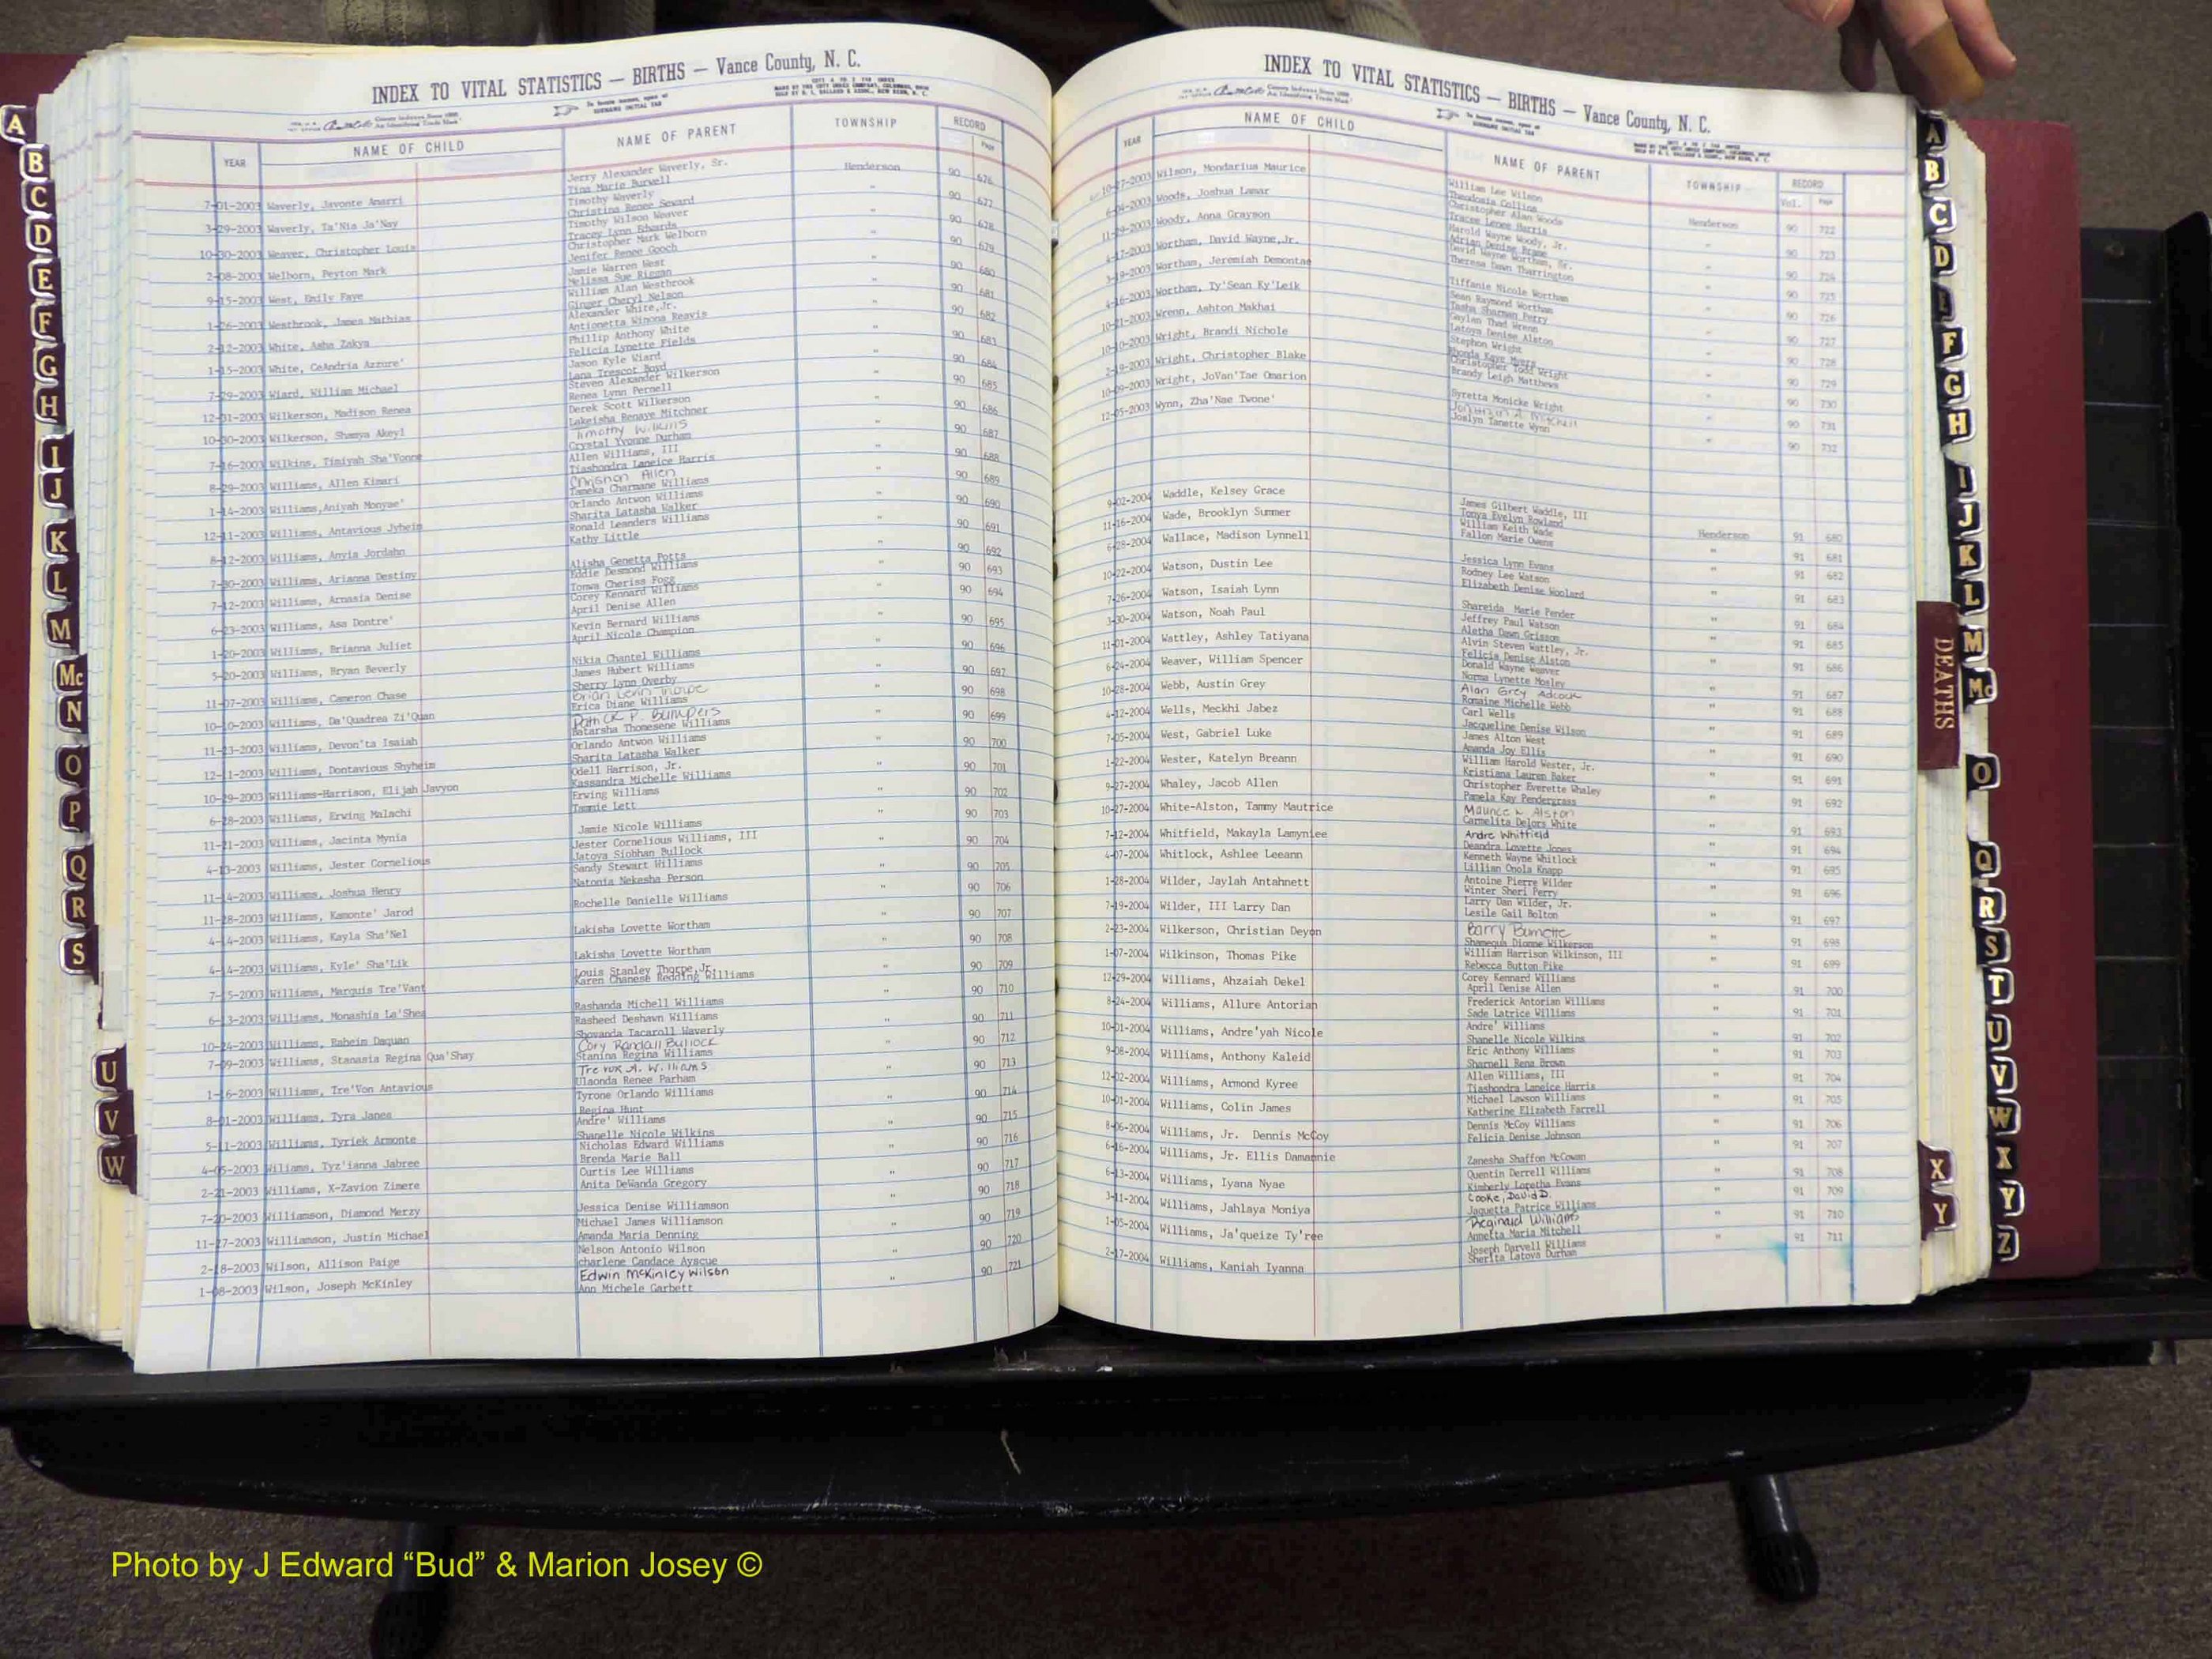 INDEX TO VITAL STATISTICS — BIRTHS — Vance County, N. C.
YEAR NAME OF CHILD NAME OF PARENT TOWNSHIP RECORD
Page
Jerry Alexander Waverly, Sr.
7-01-2003 Waverly, Javonte Amarri Tina Marie Burwell Henderson 90 676
Timothy Waverly
3-29-2003 Waverly, Ta'Nia Ja'Nay Christina Renee Seward " 90 677
Timothy Wilson Weaver
10-30-2003 Weaver, Christopher Louis Tracey Lynn Edwards " 90 678
Christopher Mark Welborn
2-08-2003 Welborn, Peyton Mark Jenifer Renee Gooch " 90 679
Jamie Warren West
9-15-2003 West, Emily Faye Melissa Sue Riggan " 90 680
William Alan Westbrook
1-26-2003 Westbrook, James Mathias Ginger Cheryl Nelson " 90 681
Alexander White,Jr.
2-12-2003 White, Asha Zakya Antionetta Winona Reavis " 90 682
Phillip Anthony White
1-15-2003 White, CeAndria Azzure' Felicia Lynette Fields " 90 683
Jason Kyle Wiard
7-29-2003 Wiard, William Michael Lana Trescot Boyd " 90 684
Steven Alexander Wilkerson
12-31-2003 Wilkerson, Madison Renea Renea Lynn Pernell " 90 685
Derek Scott Wilkerson
10-30-2003 Wilkerson, Shamya Akeyl Lakeisha Renaye Mitchner " 90 686
Timothy Wilkins
7-16-2003 Wilkins, Timiyah Sha'Vonne Crystal Yvonne Durham " 90 687
Allen Williams, III
8-29-2003 Williams, Allen Kimari Tiashondra Laneice Harris " 90 688
Allen
1-14-2003 Williams,Aniyah Monyae' Tameka Charmane Williams " 90 689
Orlando Antwon Williams
12-11-2003 Williams, Antavious Jyheim Sharita Latasha Walker " 90 690
Ronald Leanders Williams
8-12-2003 Williams, Anyia Jordahn Kathy Little " 90 691
7-30-2003 Williams, Arianna Destiny Alisha Genetta Potts 90 692
Eddie Desmond Williams
7-12-2003 Williams, Arnasia Denise Tomwa Cheriss Fogg 90 693
Corey Kennard Williams
6-23-2003 Williams, Asa Dontre' April Denise Allen 90 694
Kevin Bernard Williams
1-20-2003 Williams, Brianna Juliet April Nicole Champion 90 695
5-20-2003 Williams, Bryan Beverly Nikia Chantel Williams " 90 696
James Hubert Williams
11-07-2003 Williams, Cameron Chase Sherry Lynn Overby " 90 697
Brian Thorpe
10-10-2003 Williams, Da'Quadrea Zi'Quan Erica Diane Williams " 90 698
Patrick P. Bumpers
11-23-2003 Williams, Devon'ta Isaiah Batarsha Thomesene Williams " 90 699
Orlando Antwon Williams
12-11-2003 Williams, Dontavious Shyheim Sharita Latasha Walker " 90 700
Odell Harrison, Jr.
10-29-2003 Williams-Harrison, Elijah Javyon Kassandra Michelle Williams " 90 701
Erwing Williams
6-28-2003 Williams, Erwing Malachi Tammie Lett " 90 702
11-21-2003 Williams, Jacinta Mynia Jamie Nicole Williams " 90 703
Jester Cornelious Williams, III
4-13-2003 Williams, Jester Cornelious Jatoya Siobhan Bullock " 90 704
Sandy Stewart Williams
11-14-2003 Williams, Joshua Henry Natonia Nekesha Person " 90 705
11-28-2003 Williams, Kamonte' Jarod Rochelle Danielle Williams " 90 706
4-14-2003 Williams, Kayla Sha'Nel Lakisha Lovette Wortham " 90 707
4-14-2003 Williams, Kyle' Sha'Lik Lakisha Lovette Wortham " 90 708
Louis Stanley Thorpe,Jr.
7-15-2003 Williams, Marquis Tre'Vant Karen Chanese Redding Williams " 90 709
6-13-2003 Williams, Monashia La'Shea Rashanda Michell Williams " 90 710
Rasheed Deshawn Williams
10-24-2003 Williams, Raheim Daquan Shovanda Tacaroll Waverly " 90 711
Cory Randall Bullock
7-09-2003 Williams, Stanasia Regina Qua'Shay Stanina Regina Williams " 90 712
Trevor A. Williams
1-16-2003 Williams, Tre'Von Antavious Ulaonda Renee Parham " 90 713
Tyrone Orlando Williams
8-01-2003 Williams, Tyra Janea Regina Hunt " 90 714
Andre' Williams
5-11-2003 Williams, Tyriek Armonte Shanelle Nicole Wilkins " 90 715
Nicholas Edward Williams
4-05-2003 Wiliams, Tyz'ianna Jabree Brenda Marie Ball " 90 716
Curtis Lee Williams
2-21-2003 Williams, X-Zavion Zimere Anita DeWanda Gregory " 90 717
7-20-2003 Williamson, Diamond Merzy Jessica Denise Williamson " 90 718
Michael James Williamson
11-27-2003 Williamson, Justin Michael Amanda Maria Denning " 90 719
Nelson Antonio Wilson
2-18-2003 Wilson, Allison Paige charlene Candace Ayscue " 90 720
Edwin McKinley Wilson
1-08-2003 Wilson, Joseph McKinley Ann Michele Garbett " 90 721
INDEX TO VITAL STATISTICS — BIRTHS — Vance County, N. C.
YEAR NAME OF CHILD NAME OF PARENT TOWNSHIP RECORD
Vol. Page
William Lee Wilson
10-07-2003 Wilson, Mondarius Maurice Theodosia Collins Henderson 90 722
Christopher Alan Woods
6-04-2003 Woods, Joshua Lamar Tracee Lenee Harris " 90 723
Harold Wayne Woody, Jr.
11-09-2003 Woody, Anna Grayson Adrian Denise Brame " 90 724
David Wayne Wortham, Sr.
4-17-2003 Wortham, David Wayne,Jr. Theresa Dawn Tharrington " 90 725
3-19-2003 Wortham, Jeremiah Demontae Tiffanie Nicole Wortham " 90 726
Sean Raymond Wortham
4-16-2003 Wortham, Ty'Sean Ky'Leik Tasha Sharman Perry " 90 727
Gaylan Thad Wrenn
10-21-2003 Wrenn, Ashton Makhai Latoya Denise Alston " 90 728
Stephon Wright
10-10-2003 Wright, Brandi Nichole Rhonda Kaye Myers " 90 729
Christopher Todd Wright
2-19-2003 Wright, Christopher Blake Brandy Leigh Matthews " 90 730
10-09-2003 Wright, JoVan'Tae Omarion Syretta Monicke Wright " 90 731
12-05-2003 Wynn, Zha'Nae Twone' Joslyn Tanette Wynn " 90 732
James Gilbert Waddle, III
9-02-2004 Waddle, Kelsey Grace Tonya Evelyn Rowland Henderson 91 680
William Keith Wade
11-16-2004 Wade, Brooklyn Summer Fallon Marie Owens " 91 681
6-28-2004 Wallace, Madison Lynnell Jessica Lynn Evans " 91 682
Rodney Lee Watson
10-22-2004 Watson, Dustin Lee Elizabeth Denise Woolard " 91 683
7-26-2004 Watson, Isaiah Lynn Shareida Marie Pender " 91 684
Jeffrey Paul Watson
3-30-2004 Watson, Noah Paul Aletha Dawn Grissom " 91 685
Alvin Steven Wattley, Jr.
11-01-2004 Wattley, Ashley Tatiyana Felicia Denise Alston " 91 686
Donald Wayne Weaver
6-24-2004 Weaver, William Spencer Norma Lynette Mosley " 91 687
Alan Grey Adcock
10-28-2004 Webb, Austin Grey Romaine Michelle Webb " 91 688
Carl Wells
4-12-2004 Wells, Meckhi Jabez Jacqueline Denise Wilson " 91 689
James Alton West
7-05-2004 West, Gabriel Luke Amanda Joy Ellis " 91 690
William Harold Wester, Jr.
1-22-2004 Wester, Katelyn Breann Kristiana Lauren Baker " 91 691
Christopher Everette Whaley
9-27-2004 Whaley, Jacob Allen Pamela Kay Pendergrass " 91 692
Maurice L Alston
10-27-2004 White-Alston, Tammy Mautrice Carmelita Delors White " 91 693
Andre Whitfield
7-12-2004 Whitfield, Makayla Lamynlee Deandra Lovette Jones " 91 694
Kenneth Wayne Whitlock
4-07-2004 Whitlock, Ashlee Leeann Lillian Onola Knapp " 91 695
Antoine Pierre Wilder
1-28-2004 Wilder, Jaylah Antahnett Winter Sheri Perry " 91 696
Larry Dan Wilder, Jr.
7-19-2004 Wilder, III Larry Dan Leslie Gail Bolton " 91 697
Barry Burnette
2-23-2004 Wilkerson, Christian Deyon Shamequa Dionne Wilkerson " 91 698
William Harrison Wilkinson, III
1-07-2004 Wilkinson, Thomas Pike Rebecca Button Pike " 91 699
Corey Kennard Williams
12-29-2004 Williams, Ahzaiah Dekel April Denise Allen " 91 700
Frederick Antorian Williams
8-24-2004 Williams, Allure Antorian Sade Latrice Williams " 91 701
Andre' Williams
10-01-2004 Williams, Andre'yah Nicole Shanelle Nicole Wilkins " 91 702
Eric Anthony Williams
9-08-2004 Williams, Anthony Kaleid Sharnell Rena Brown " 91 703
Allen Williams, III
12-02-2004 Williams, Armond Kyree Tiashondra Laneice Harris " 91 704
Michael Lawson Williams
10-01-2004 Williams, Colin James Katherine Elizabeth Farrell " 91 705
Dennis McCoy Williams
8-06-2004 Williams, Jr. Dennis McCoy Felicia Denise Johnson " 91 706
6-16-2004 Williams, Jr. Ellis Damannie Zanesha Shaffon McCowan " 91 707
Quentin Derrell Williams
6-13-2004 Williams, Iyana Nyae Kimberly Loretha Evans " 91 708
Cooke, David D.
3-11-2004 Williams, Jahlaya Moniya Jaquetta Patrice Williams " 91 709
Reginald Williams
1-05-2004 Williams, Ja'queize Ty'ree Annetta Maria Mitchell " 91 710
Joseph Darvell Williams
2-17-2004 Williams, Kaniah Iyanna Sherita Latoya Durham " 91 711
A
B
C
D
E
F
G
H
I
J
K
L
M
Mc
N
O
P
Q
R
S
U
V
W
A
B
C
D
E
F
G
H
I
J
K
L
M
Mc
DEATHS
O
Q
R
S
T
U
V
W
X
Y
Z
X
Y
Photo by J Edward “Bud” & Marion Josey ©